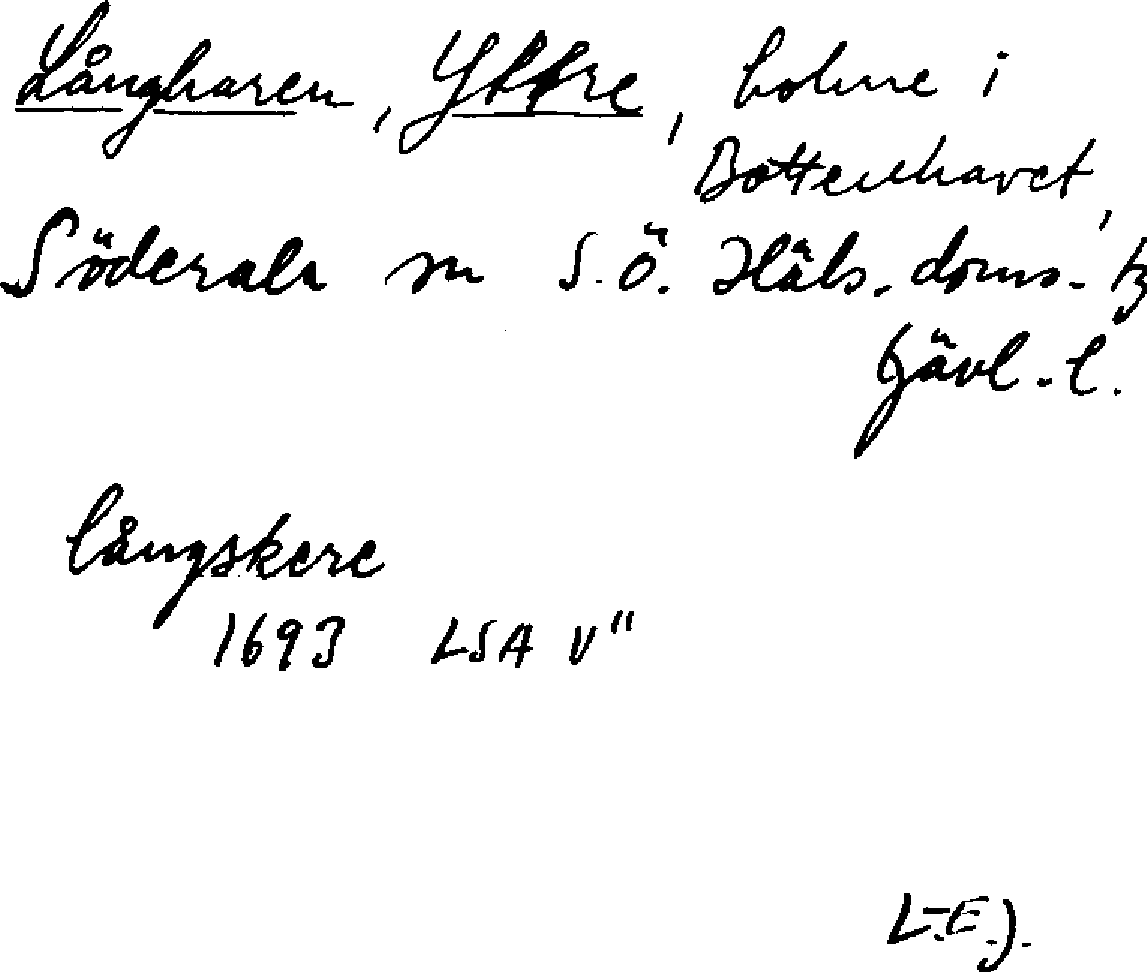 Långharen, Yttre, holme i
Bottenhavet,
Söderala sn S.Ö. Häls. doms. tg
Gävl. l.
långskere
1693 LSA V"
L-E.J.